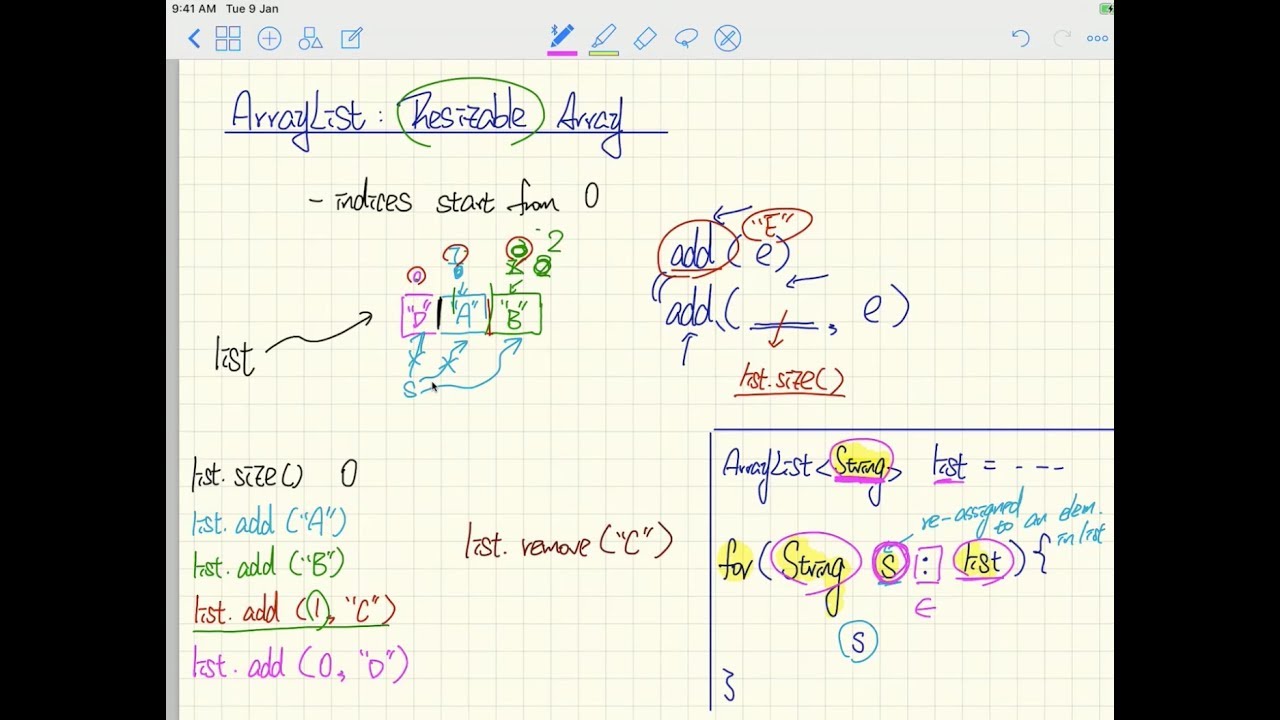 9:41 AM Tue 9 Jan
ArrayList : Resizable Array
- indices start from 0
"E"
add ( e )
add ( , e )
list.size()
0 1 2
"D" "A" "B"
list
s
list. size() 0
list. add ("A")
list. add ("B")
list. add (1, "C")
list. add (0, "D")
list. remove ("C")
ArrayList<String> list = - - -
re-assigned
to an elem.
in list
for ( String s : list ) {
∈
s
}